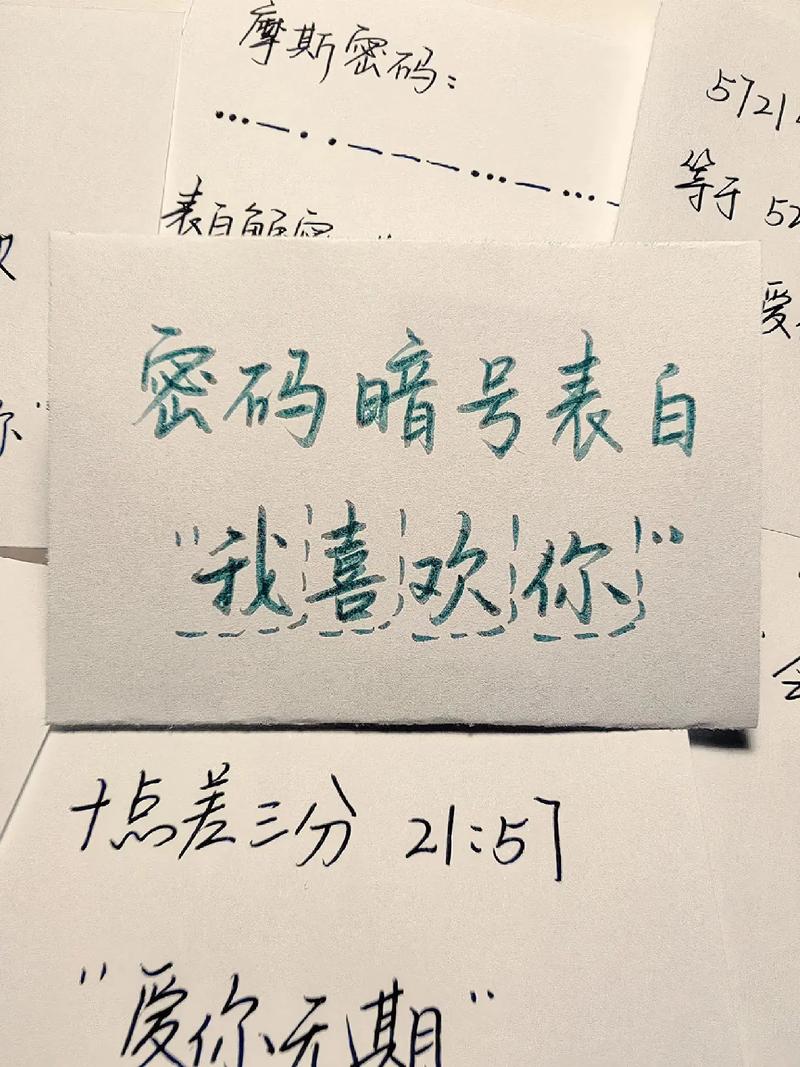 摩斯密码：
•••—••—————•••—•••—
表白解密
5721
等于 52
爱
密码暗号表白
"我喜欢你"
十点差三分 21:57
"爱你无期"